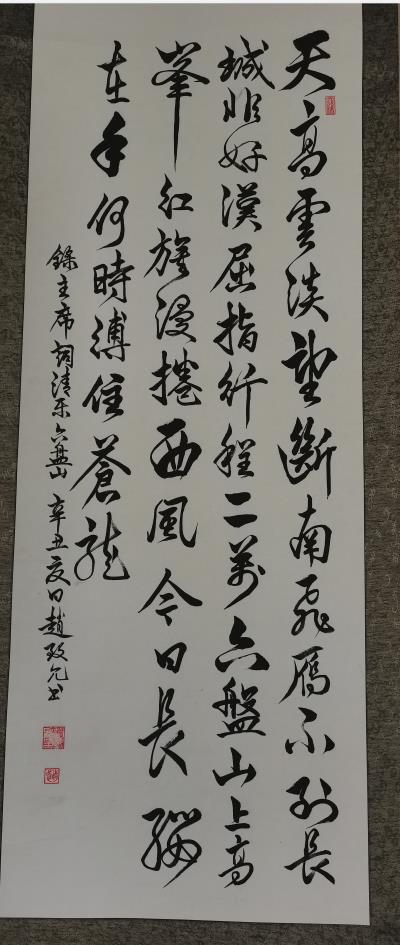 天高雲淡望斷南飛雁不到長
城非好漢屈指行程二萬六盤山上高
峯紅旗漫捲西風今日長纓
在手何時縛住蒼龍
錄主席詞清平乐六盘山 辛丑夏日趙政允书